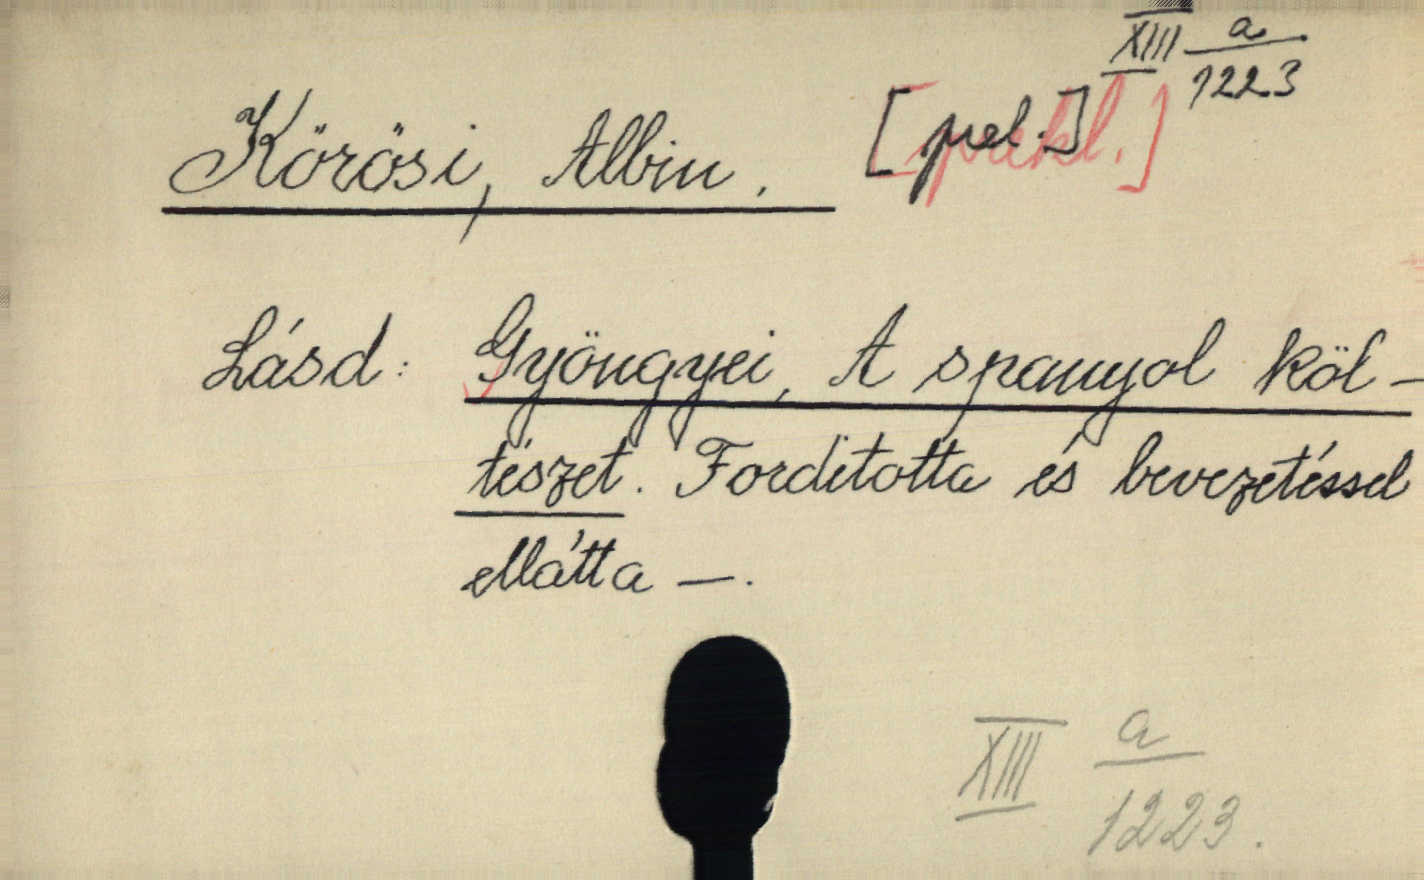 XIII a/1223
Körösi, Albin. [prel.] [prekl.]
Lásd: Gyöngyei, A spanyol köl-
tészet. Fordította és bevezetéssel
ellátta —.
XIII a/1223.